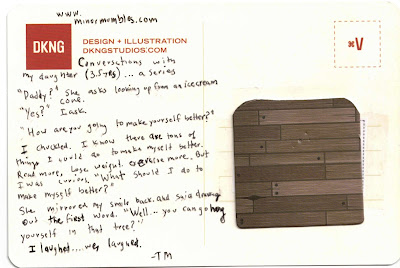 www.
minormumbles.com
DKNG
DESIGN + ILLUSTRATION
DKNGSTUDIOS.COM
⌘V
Conversations with
my daughter (3.5yrs)... a series
"Daddy?" She asks looking up from an icecream
cone.
"Yes?" I ask.
"How are you going to make yourself better?"
I chuckled. I know there are tons of
things I could do to make myself better.
Read more, Lose weight. exercise more. But
I was curious. "What should I do to
make myself better?"
She mirrored my smile back. And said drawing
out the first word. "Well... you can go hang
yourself in that tree?"
I laughed....we laughed.
-TM